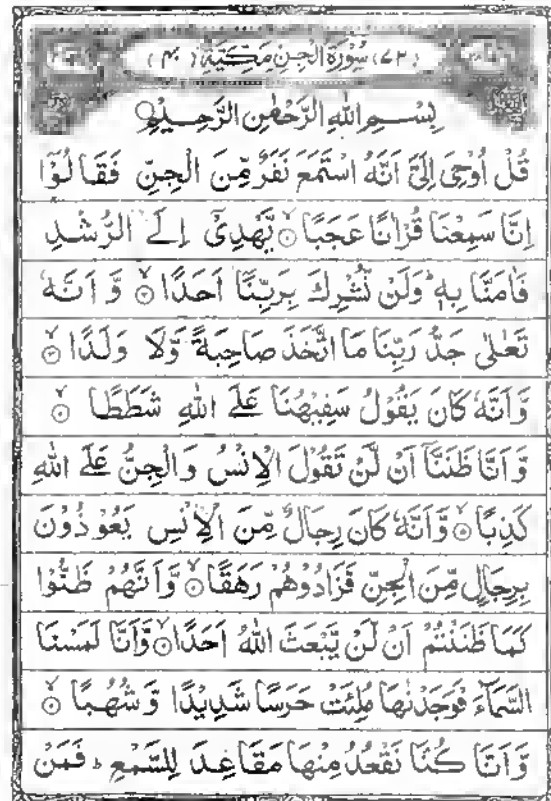 (٧٢) سُوْرَةُ الْجِنِّ مَكِّيَّةٌ (٤٠)
بِسْمِ اللهِ الرَّحْمٰنِ الرَّحِيْمِ
قُلْ اُوْحِیَ اِلَیَّ اَنَّهُ اسْتَمَعَ نَفَرٌ مِّنَ الْجِنِّ فَقَالُوْۤا
اِنَّا سَمِعْنَا قُرْاٰنًا عَجَبًا ۙ یَّهْدِیْۤ اِلَی الرُّشْدِ
فَاٰمَنَّا بِهٖ ؕ وَلَنْ نُّشْرِكَ بِرَبِّنَاۤ اَحَدًا ۙ وَّ اَنَّهٗ
تَعٰلٰی جَدُّ رَبِّنَا مَا اتَّخَذَ صَاحِبَةً وَّلَا وَلَدًا ۙ
وَّاَنَّهٗ كَانَ یَقُوْلُ سَفِیْهُنَا عَلَی اللهِ شَطَطًا ۙ
وَّاَنَّا ظَنَنَّاۤ اَنْ لَّنْ تَقُوْلَ الْاِنْسُ وَالْجِنُّ عَلَی اللهِ
كَذِبًا ۙ وَّاَنَّهٗ كَانَ رِجَالٌ مِّنَ الْاِنْسِ یَعُوْذُوْنَ
بِرِجَالٍ مِّنَ الْجِنِّ فَزَادُوْهُمْ رَهَقًا ۙ وَّاَنَّهُمْ ظَنُّوْا
كَمَا ظَنَنْتُمْ اَنْ لَّنْ یَّبْعَثَ اللهُ اَحَدًا ۙ وَّاَنَّا لَمَسْنَا
السَّمَآءَ فَوَجَدْنٰهَا مُلِئَتْ حَرَسًا شَدِیْدًا وَّ شُهُبًا ۙ
وَّاَنَّا كُنَّا نَقْعُدُ مِنْهَا مَقَاعِدَ لِلسَّمْعِ ؕ فَمَنْ